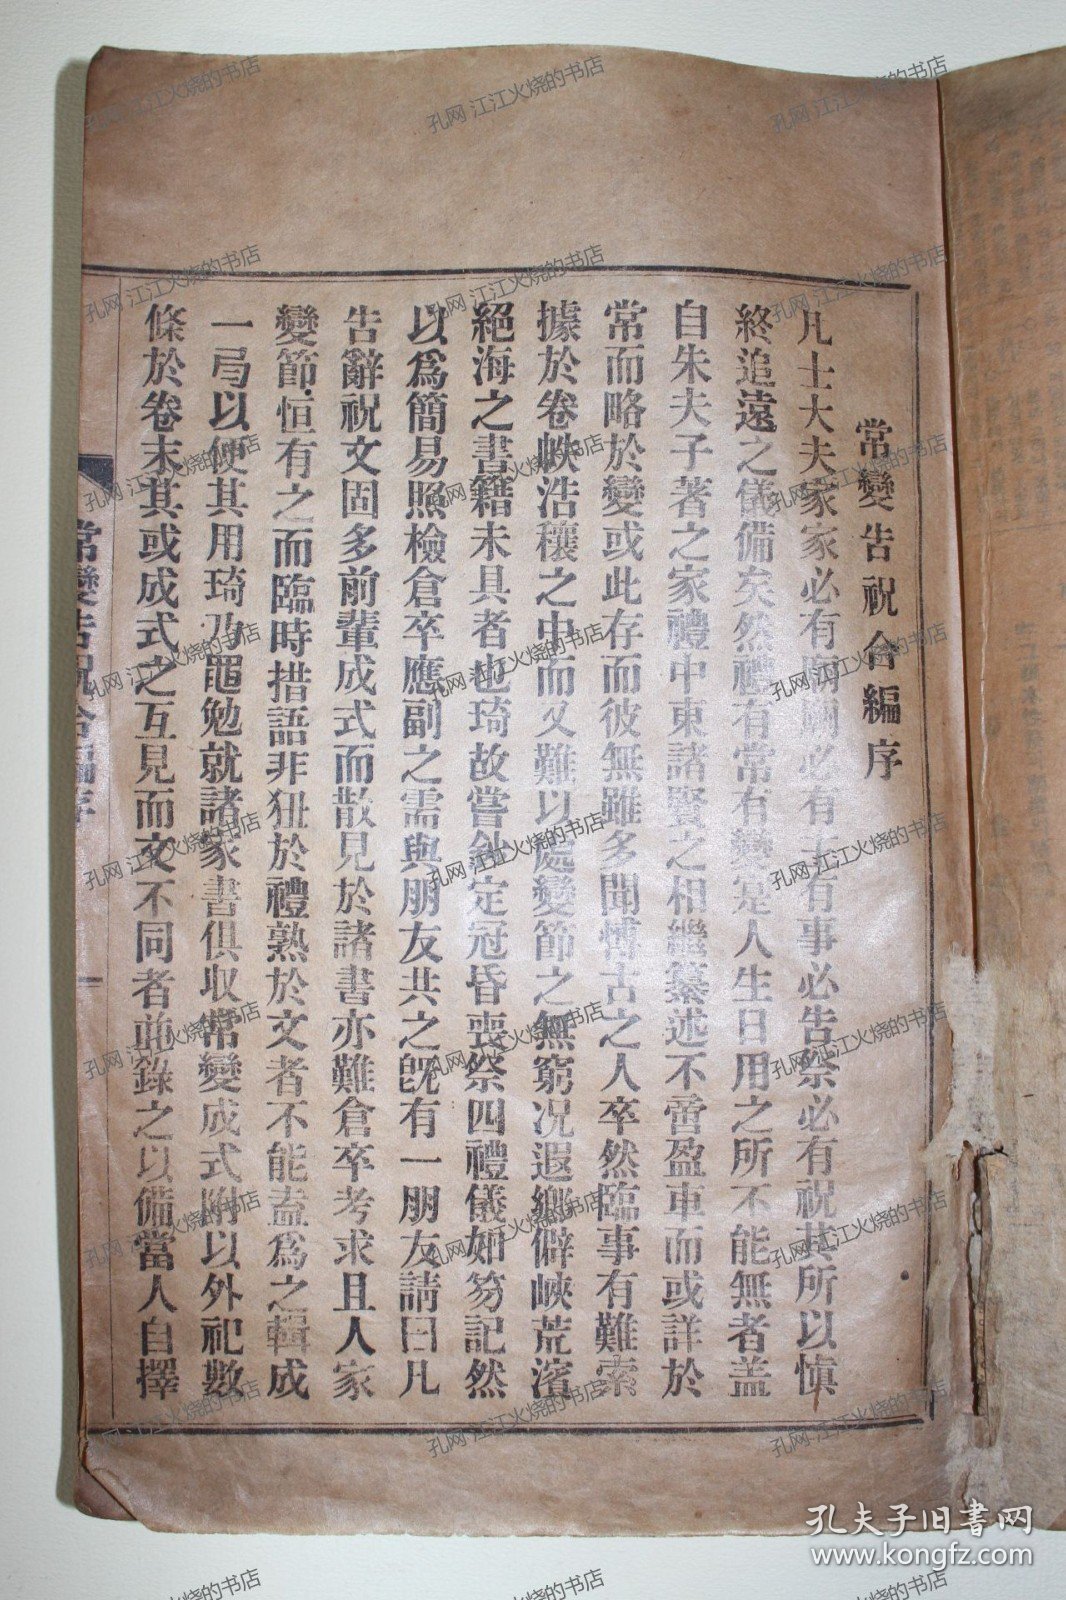 常變告祝合編序
凡士大夫家家必有廟廟必有主有事必告祭必有祝其所以愼
終追遠之儀備矣然禮有常有變寔人生日用之所不能無者盖
自朱夫子著之家禮中東諸賢之相繼纂述不啻盈車而或詳於
常而略於變或此存而彼無雖多聞博古之人卒然臨事有難索
據於卷帙浩穰之中而又難以處變節之無窮况遐鄉僻峽荒濱
絕海之書籍未具者也琦故嘗鈔定冠昏喪祭四禮儀如笏記然
以爲簡易照檢倉卒應副之需與朋友共之旣有一朋友請曰凡
告辭祝文固多前輩成式而散見於諸書亦難倉卒考求且人家
變節恒有之而臨時措語非狃於禮熟於文者不能盍爲之輯成
一局以便其用琦乃黽勉就諸家書俱収常變成式附以外祀數
條於卷末其或成式之互見而文不同者並錄之以備當人自擇
常變告祝合編序
一
孔夫子旧书网
www.kongfz.com
孔网 江江火烧的书店